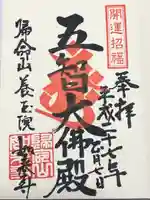 開運招福
奉拝
平成二十七年
七月七日
五智大佛殿
帰命山養玉院
如来寺